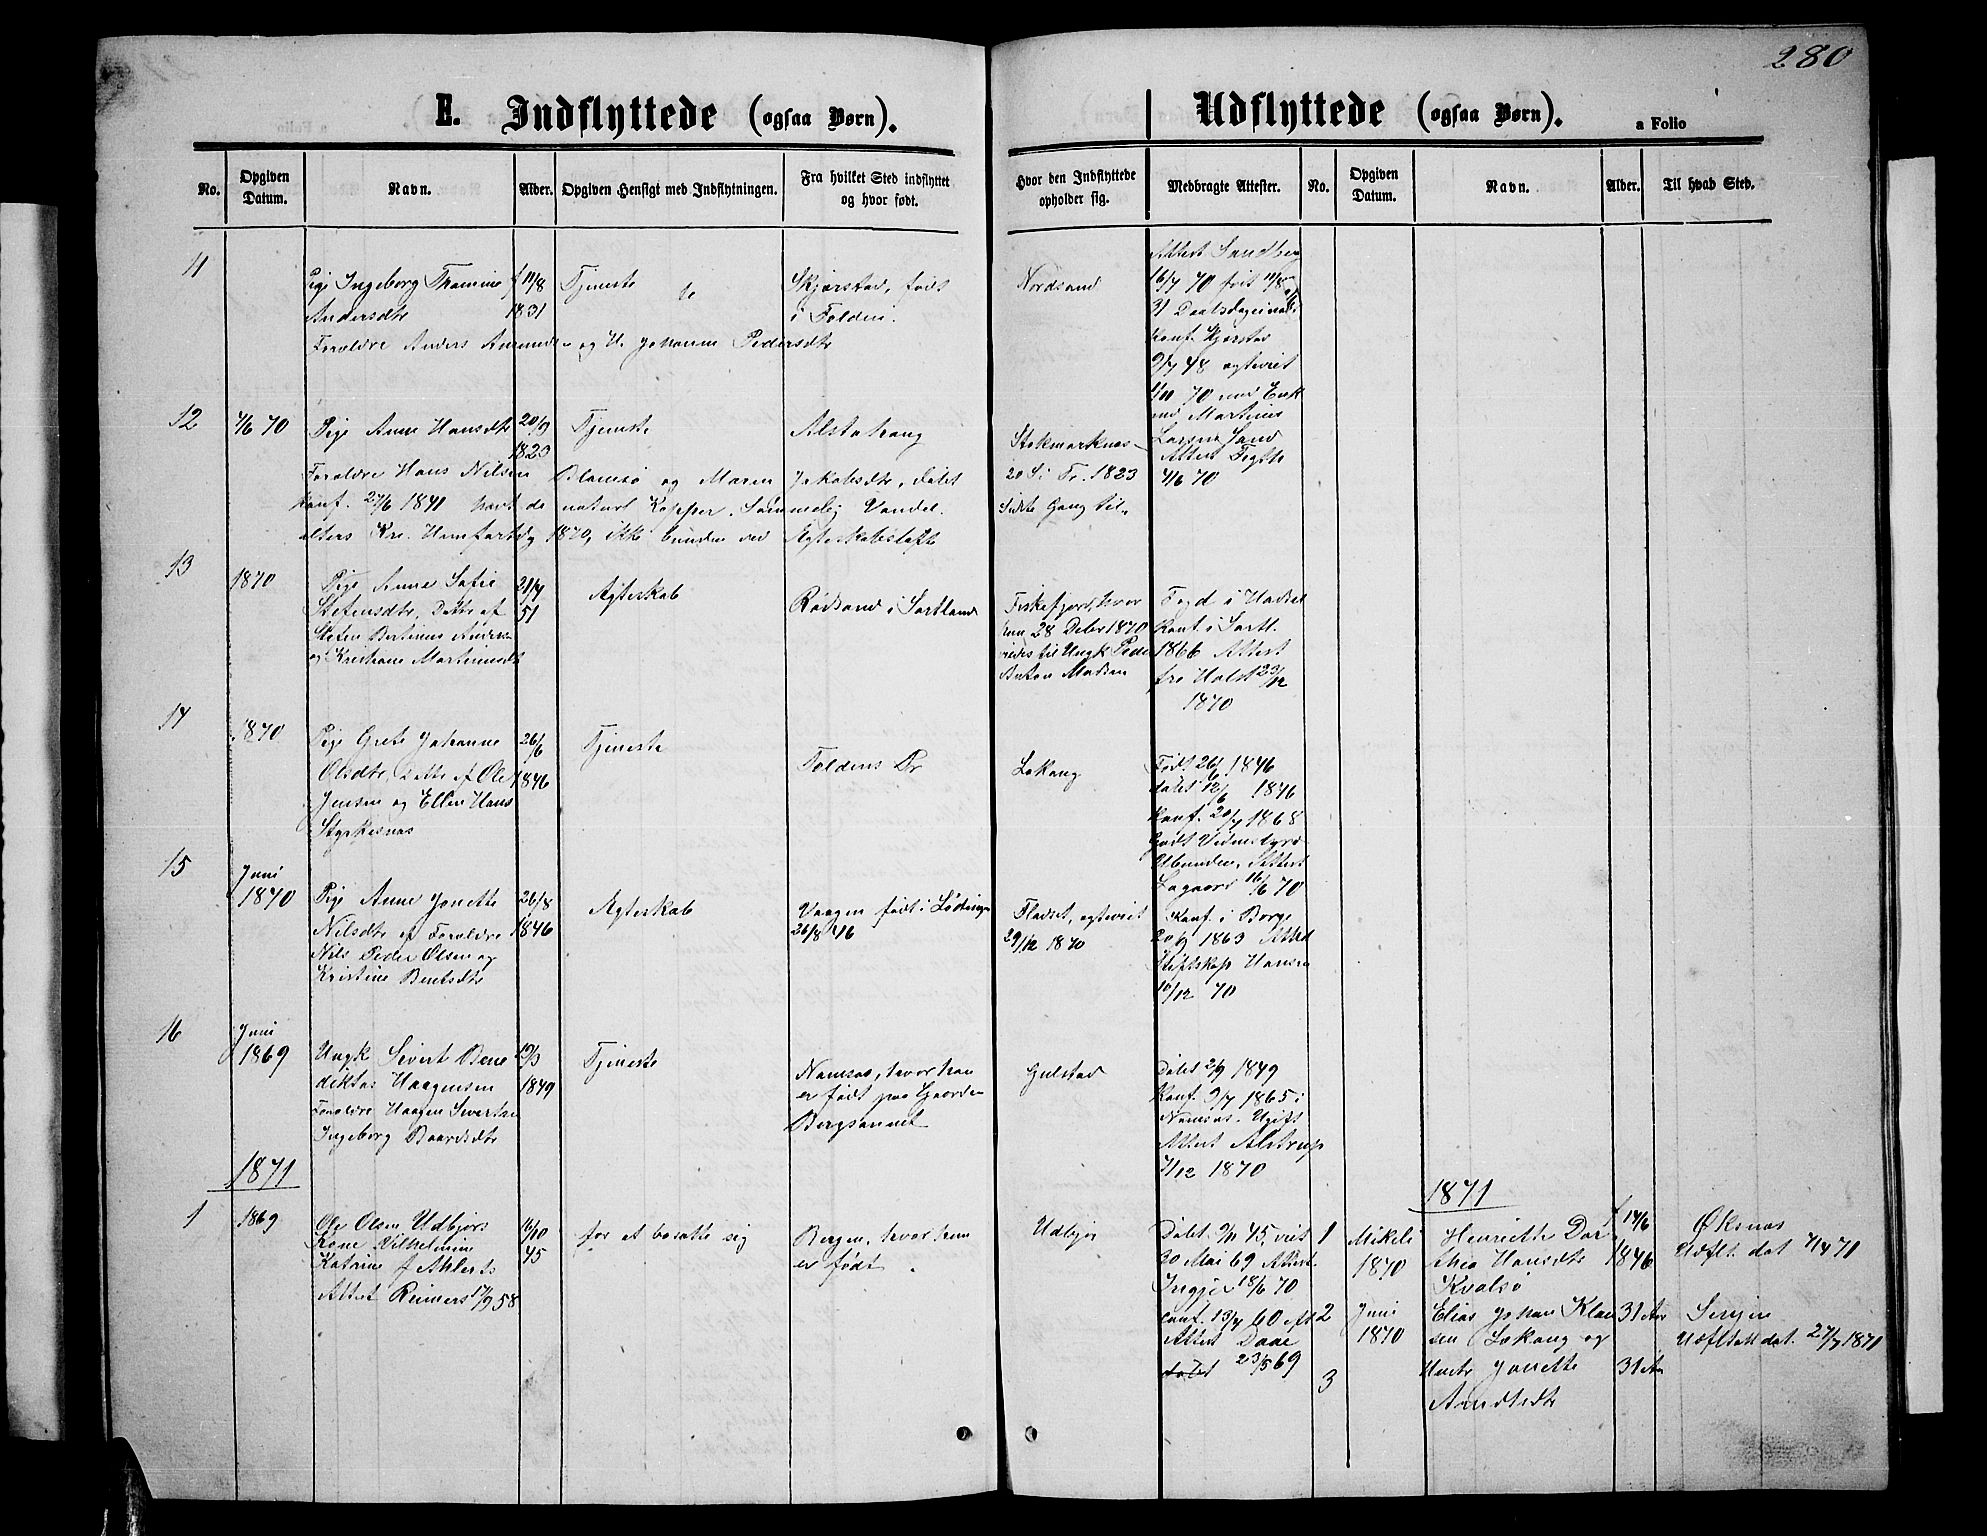 280
E. Indflyttede (ogsaa Børn).
Udflyttede (ogsaa Børn). a Folio
No.
Opgiven Datum.
Navn.
Alder.
Opgiven Hensigt med Indflytningen.
Fra hvilket Sted indflyttet og hvor født.
Hvor den Indflyttede opholder sig.
Medbragte Attester.
No.
Opgiven Datum.
Navn.
Alder.
Til hvad Sted.
11
Pige Ingeborg
Andersdtr
Forældre Anders og H. Johanna Pedersdtr
11/8
1831
Tjeneste
Skjerstad, født
i Folden.
Nordsand
Attest Sandberg
16/7 70
31
Konf. Skjerstad
9/7 48 ægteviet
70 med Enk
md Martinus
Larsen Sand
12
4/6 70
Pige Anne Hansdtr
20/9
1823
Tjeneste
Alstahaug
Forældre Hans Nilsen og Maren Jakobsdtr, døbt
Konf. 27/6 1841 havt de naturl Kopper. Sømmelig Vandel.
alters 1870, ikke bunden ved Ægteskabsløfte
Stokmarknæs
20 S. i Tr. 1823
sidste Gang til
Attest
4/6 70
13
1870
Pige Anne Sofie
Stefensdtr, Dattr af
Stefen Bertinus Anders
og Kristiane Martinusdt
21/7
51
Ægteskab
Rødsand i Sortland
Fiskefjord, hvor
hun 28 Debr 1870
viedes til Ungk Peder
Anton Madsen
Født i Hadsel
Konf. i Sortl.
1866 Attest
fra Holst 23/12
1870
14
1870
Pige Grete Johanne
Olsdtr, Dattr af Ole
Jensen og Ellen Hans
Styrkesnæs
26/6
1846
Tjeneste
Foldens Pr
Løkaug
Født 26/6 1846
døbt 12/6 1846
Konf. 20/7 1868
Godt Vidnesbyrd
Ubunden, Attest
16/6 70
15
Juni
1870
Pige Anne Jonette
Nilsdtr af Forældre
Nils Peder Olsen og
Kristine Bentsdtr
26/8
1846
Ægteskab
Vaagen født i Lødingen
26/8 46
Fladset, ægteviet
29/12 1870
Konf. i Borge
20/9 1863 Attest
Stiftskap Hansen
10/12 70
16
Juni
1869
Ungk Sivert Bene
diktus Haagensen
Forældre Haagen Sivertsen
Ingeborg Baardsdtr
19/3
1849
Tjeneste
Namsos, hvor han
er født paa Gaarden
Bergsunnet
Gulstad
Døbt 2/9 1849
Konf. 9/7 1865 i
Namsos. Ugift
Attest Alstrup
7/12 1870
1871
1
1869
Ole Olsen Udbjørs
Kone Vilhelmine
Katrine f Ahlerts
Attest Reimers 17/9 58
16/10
45
for at bosætte sig
Bergen, hvor hun
er født
Udbjør
Døbt 9/11 45, viet
30 Mai 69 Attest
18/6 70
conf. 13/4 60 eft
Attest Daae
23/5 69
1871
1
Mikeli
1870
Henriette Dor
thea Hansdtr
Kvalsø
f 14/6
1846
Øksnæs
Udflt. dat 4/4 71
2
Juni
1870
Elias Johan Klau
sen Løkaug og
31 Aar
Senjen
Udfltatt dat. 27/7 1871
3
Hustr Jonette
Arndtsdtr
31 Aar